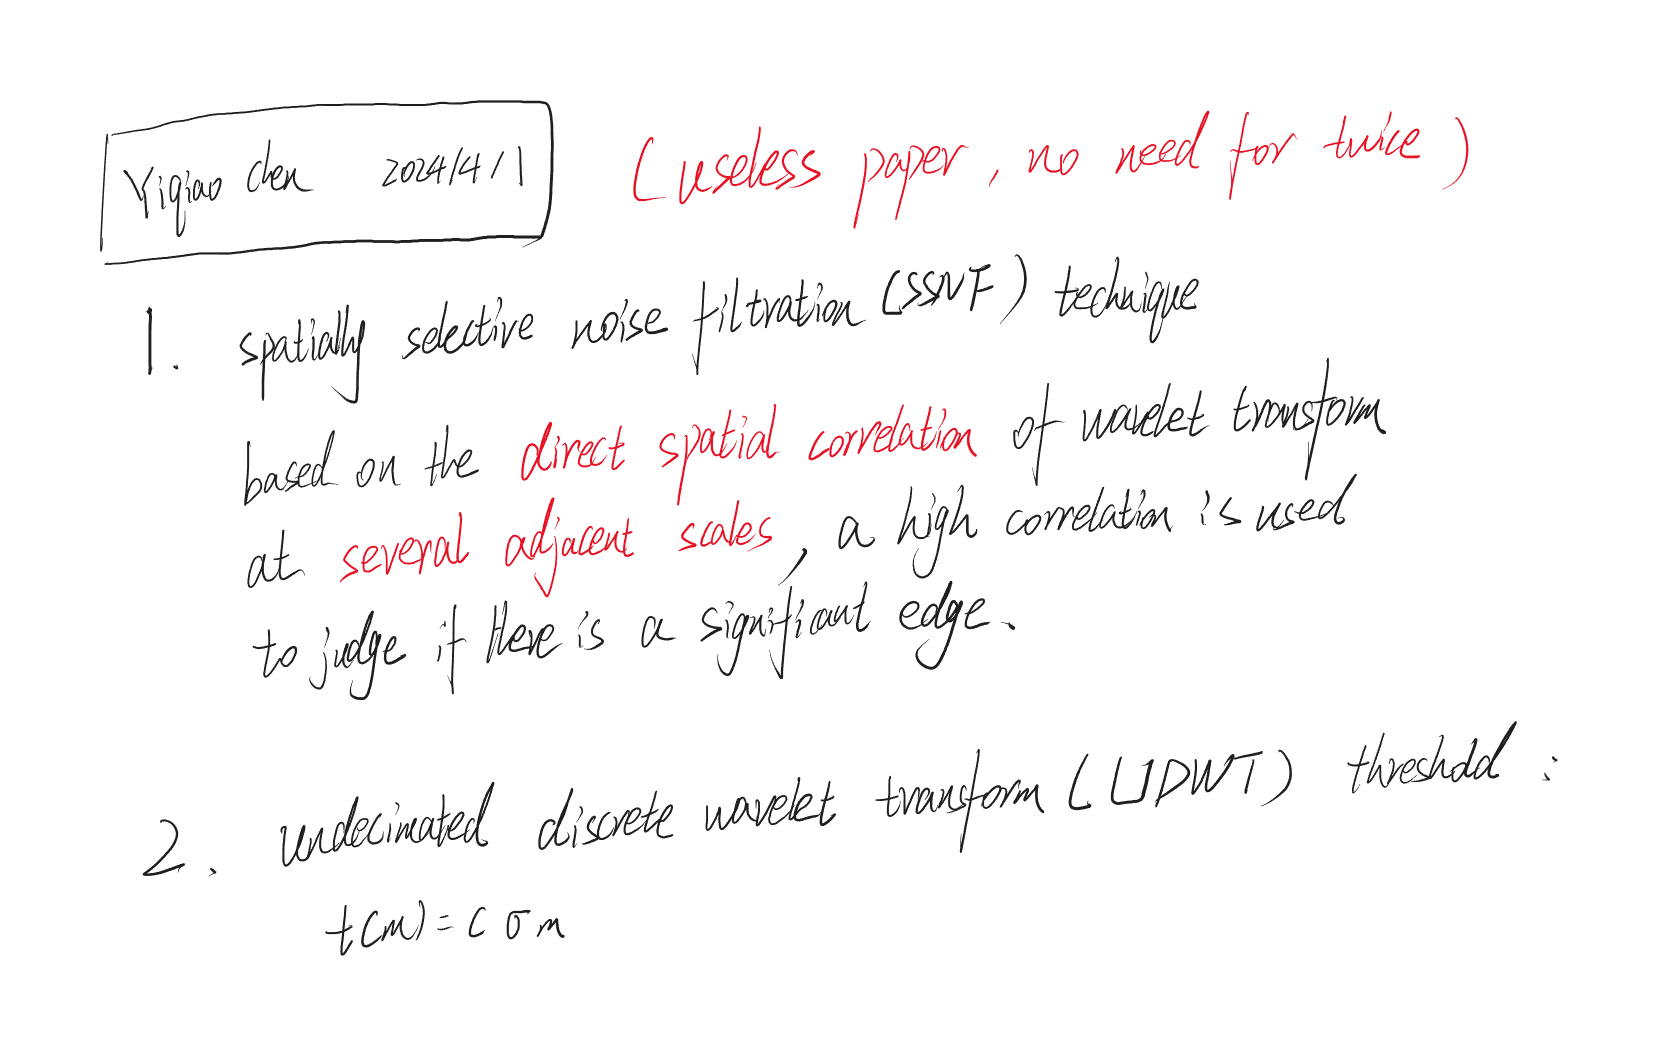 Yiqiao Chen 2024/4/1 (useless paper, no need for twice)
1. spatially selective noise filtration (SSNF) technique
based on the direct spatial correlation of wavelet transform
at several adjacent scales, a high correlation is used
to judge if there is a significant edge.
2. undecimated discrete wavelet transform (UDWT) threshold:
t(m)=cσm